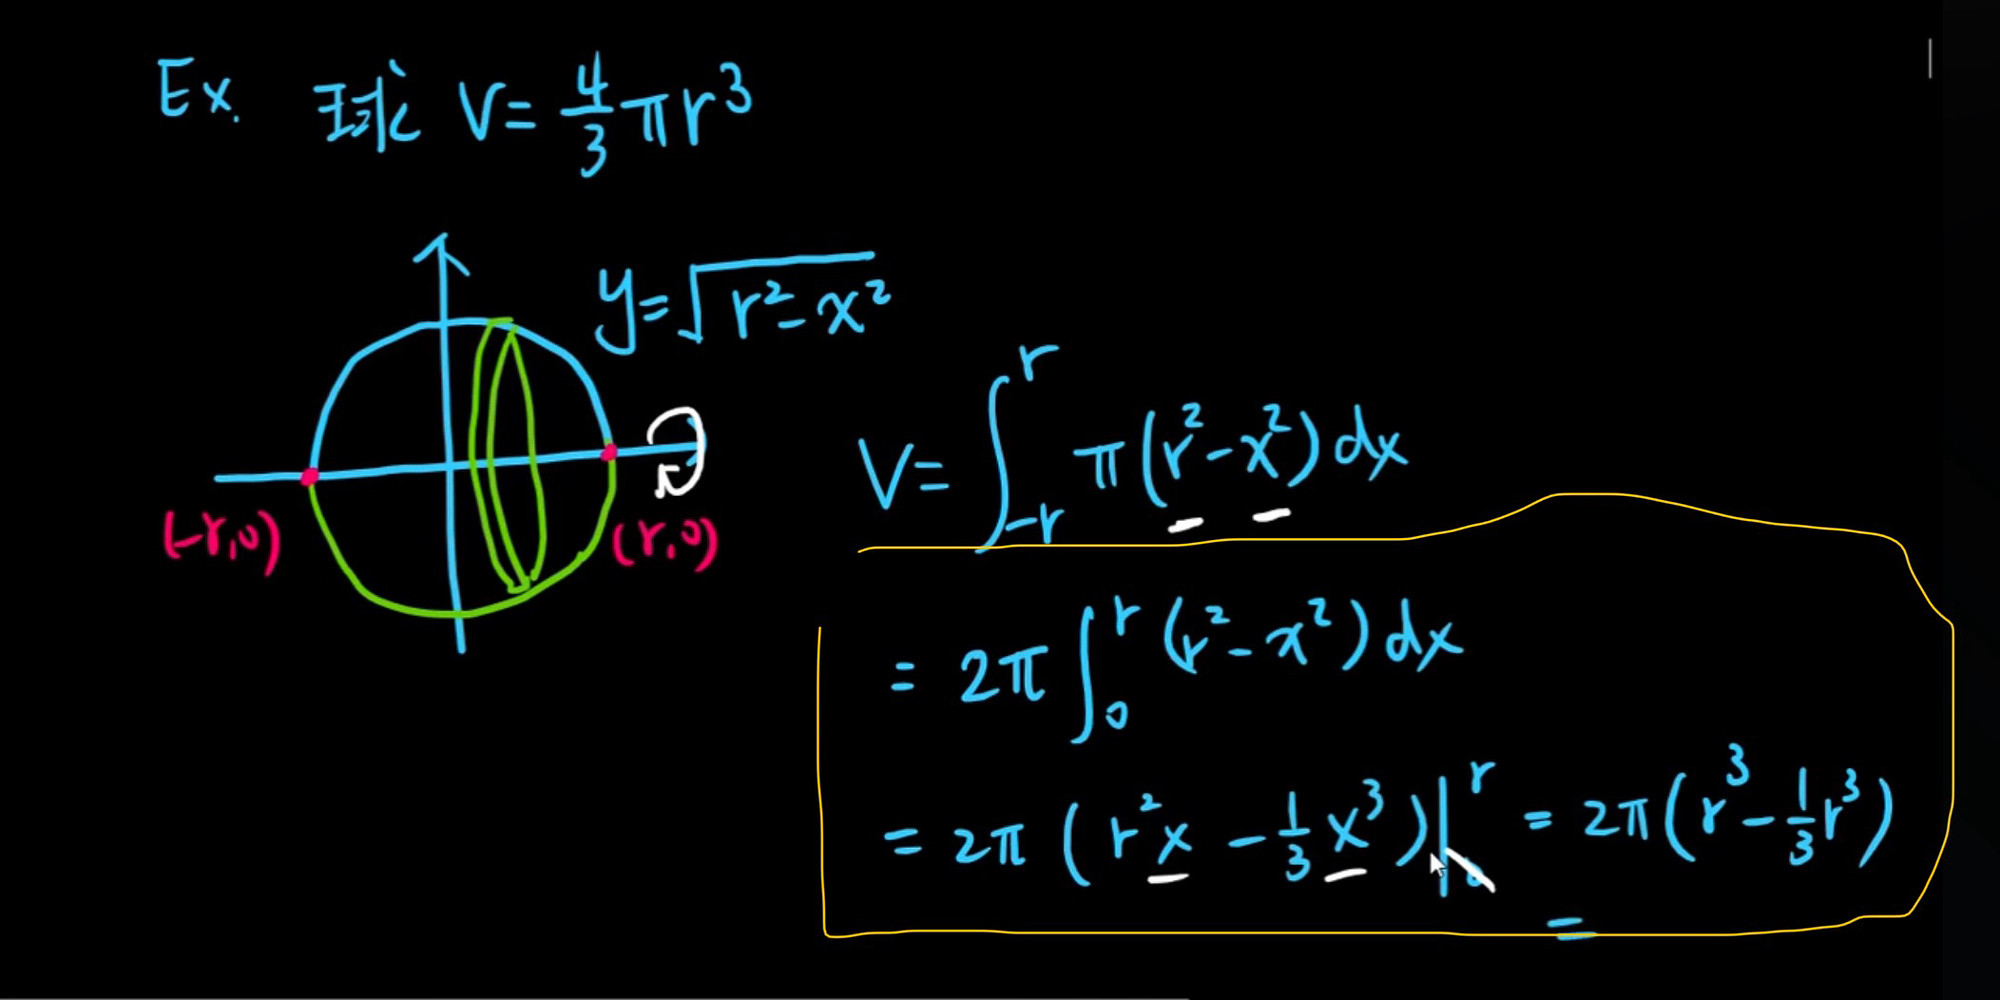 Ex. 球 V=4/3 πr³
y=√(r²-x²)
(-r,0)
(r,0)
V=∫_{-r}^{r} π(r²-x²)dx
= 2π∫_{0}^{r}(r²-x²)dx
= 2π(r²x-1/3 x³)|_{0}^{r} = 2π(r³-1/3 r³)
=